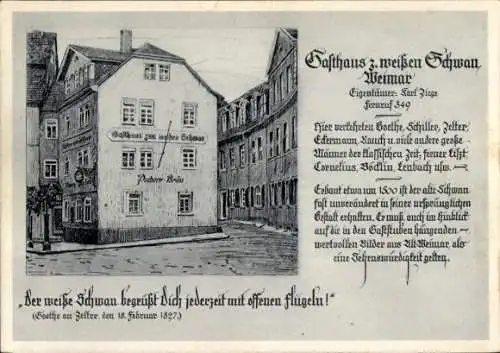 Gasthaus z. weißen Schwan
Weimar
Eigentümer: Karl Ziege
Fernruf 849
Hier verkehrten Goethe, Schiller, Zelter,
Eckermann, Rauch u. viele andere große
Männer der klassischen Zeit; ferner Liszt,
Cornelius, Böcklin, Lenbach usw. —
Erbaut etwa um 1500 ist der alte Schwan
fast unverändert in seiner ursprünglichen
Gestalt erhalten. Er muß auch im Hinblick
auf die in den Gaststuben hängenden
wertvollen Bilder aus Alt-Weimar, als
eine Sehenswürdigkeit gelten.
Gasthaus zum weißen Schwan
Pschorr-Bräu
„Der weiße Schwan begrüßt Dich jederzeit mit offenen Flügeln!"
(Goethe an Zelter, den 18. Februar 1827.)